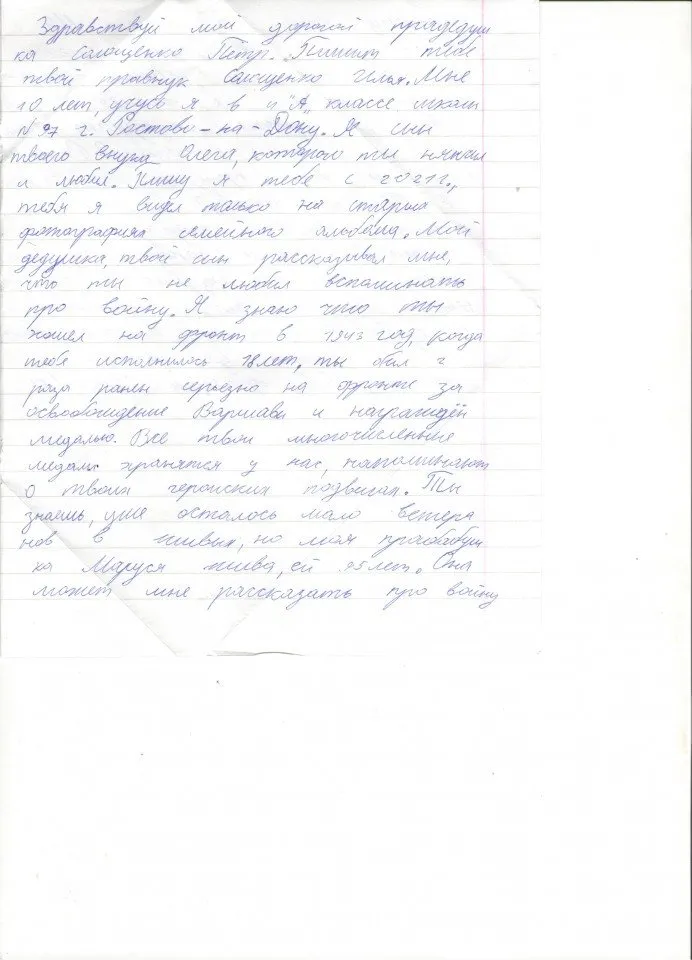 Здравствуй мой дорогой прадедуш
ка Солощенко Пётр. Пишет тебе
твой правнук Солощенко Илья. Мне
10 лет, учусь я в 4 "А" классе школы
№ 97 г. Ростова-на-Дону. Я сын
твоего внука Олега, которого ты нянчил
и любил. Пишу я тебе с 2021г.,
тебя я видел только на старых
фотографиях семейного альбома. Мой
дедушка, твой сын рассказывал мне,
что ты не любил вспоминать
про войну. Я знаю что ты
пошел на фронт в 1943 год, когда
тебе исполнилось 18 лет, ты был 2
раза ранен серьезно на фронте за
освобождение Варшавы и награждён
медалью. Все твои многочисленные
медали хранятся у нас, напоминают
о твоих геройских подвигах. Ты
знаешь, уже осталось мало ветера
нов в живых, но моя прабабуш
ка Маруся жива, ей 95 лет. Она
может мне рассказать про войну